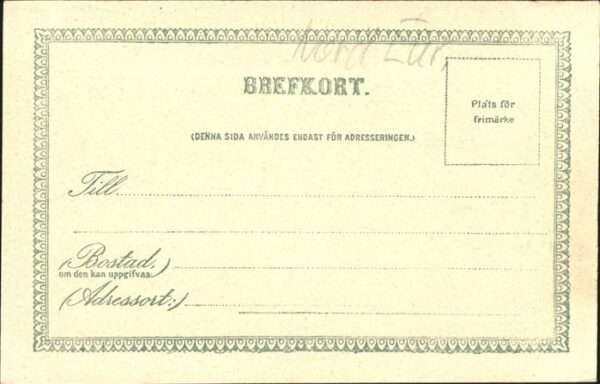 Nord Eur.
BREFKORT.
Plats för
frimärke
(DENNA SIDA ANVÄNDES ENDAST FÖR ADRESSERINGEN.)
Till
(Bostad.)
om den kan uppgifvas.
(Adressort:)